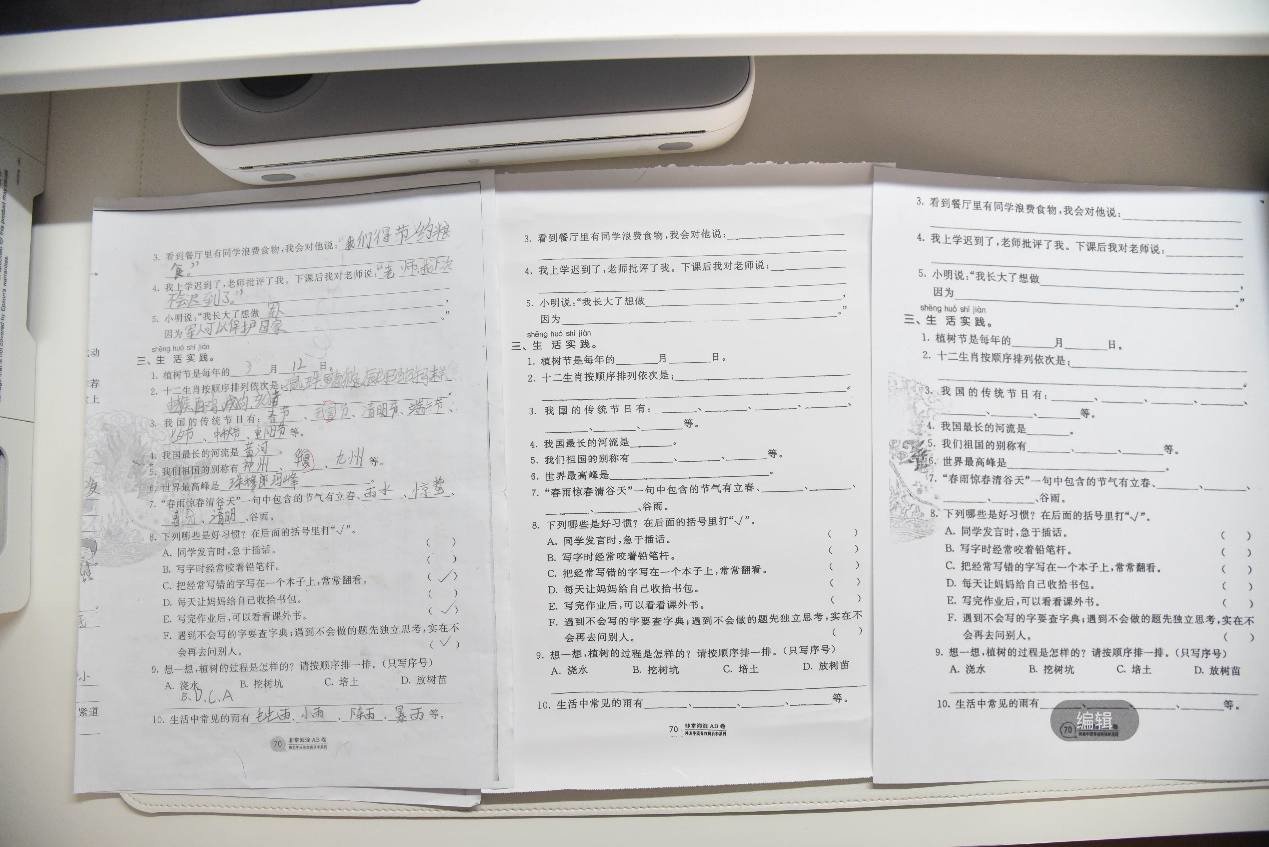 3. 看到餐厅里有同学浪费食物,我会对他说:“我们得节约粮
食。”
4. 我上学迟到了,老师批评了我。下课后我对老师说:“老师我下次
不会迟到了。”
5. 小明说:“我长大了想做
因为军人可以保护国家。”
shēng huó shí jiàn
三、生 活 实 践。
1. 植树节是每年的 3 月 12 日。
2. 十二生肖按顺序排列依次是:
3. 我国的传统节日有:春节、、清明节、端午节、
、中秋节、重阳节等。
4. 我国最长的河流是。
5. 我们祖国的别称有神州、、九州等。
6. 世界最高峰是珠穆朗玛峰
7. “春雨惊春清谷天”一句中包含的节气有立春、雨水、惊蛰、
春分、清明、谷雨。
8. 下列哪些是好习惯?在后面的括号里打“√”。
A. 同学发言时,急于插话。 ( )
B. 写字时经常咬着铅笔杆。 ( )
C. 把经常写错的字写在一个本子上,常常翻看。 (√)
D. 每天让妈妈给自己收拾书包。 ( )
E. 写完作业后,可以看看课外书。 (√)
F. 遇到不会写的字要查字典;遇到不会做的题先独立思考,实在不
会再去问别人。 (√)
9. 想一想,植树的过程是怎样的?请按顺序排一排。(只写序号)
A. 浇水 B. 挖树坑 C. 培土 D. 放树苗
B.D.C.A
10. 生活中常见的雨有毛毛雨、小雨、阵雨、暴雨等。
70 非常阅读AB卷
3. 看到餐厅里有同学浪费食物,我会对他说:
4. 我上学迟到了,老师批评了我。下课后我对老师说:
5. 小明说:“我长大了想做,
因为。”
shēng huó shí jiàn
三、生 活 实 践。
1. 植树节是每年的 月 日。
2. 十二生肖按顺序排列依次是:
。
3. 我国的传统节日有:、、、、
、、等。
4. 我国最长的河流是。
5. 我们祖国的别称有、、等。
6. 世界最高峰是。
7. “春雨惊春清谷天”一句中包含的节气有立春、、、
、、谷雨。
8. 下列哪些是好习惯?在后面的括号里打“√”。
A. 同学发言时,急于插话。 ( )
B. 写字时经常咬着铅笔杆。 ( )
C. 把经常写错的字写在一个本子上,常常翻看。 ( )
D. 每天让妈妈给自己收拾书包。 ( )
E. 写完作业后,可以看看课外书。 ( )
F. 遇到不会写的字要查字典;遇到不会做的题先独立思考,实在不
会再去问别人。 ( )
9. 想一想,植树的过程是怎样的?请按顺序排一排。(只写序号)
A. 浇水 B. 挖树坑 C. 培土 D. 放树苗
10. 生活中常见的雨有、、、等。
70 非常阅读AB卷
3. 看到餐厅里有同学浪费食物,我会对他说:
4. 我上学迟到了,老师批评了我。下课后我对老师说:
5. 小明说:“我长大了想做,
因为。”
shēng huó shí jiàn
三、生 活 实 践。
1. 植树节是每年的 月 日。
2. 十二生肖按顺序排列依次是:
。
3. 我国的传统节日有:、、、、
、、等。
4. 我国最长的河流是。
5. 我们祖国的别称有、、等。
6. 世界最高峰是。
7. “春雨惊春清谷天”一句中包含的节气有立春、、、
、、谷雨。
8. 下列哪些是好习惯?在后面的括号里打“√”。
A. 同学发言时,急于插话。 ( )
B. 写字时经常咬着铅笔杆。 ( )
C. 把经常写错的字写在一个本子上,常常翻看。 ( )
D. 每天让妈妈给自己收拾书包。 ( )
E. 写完作业后,可以看看课外书。 ( )
F. 遇到不会写的字要查字典;遇到不会做的题先独立思考,实在不
会再去问别人。 ( )
9. 想一想,植树的过程是怎样的?请按顺序排一排。(只写序号)
A. 浇水 B. 挖树坑 C. 培土 D. 放树苗
10. 生活中常见的雨有、、、等。
70 编辑